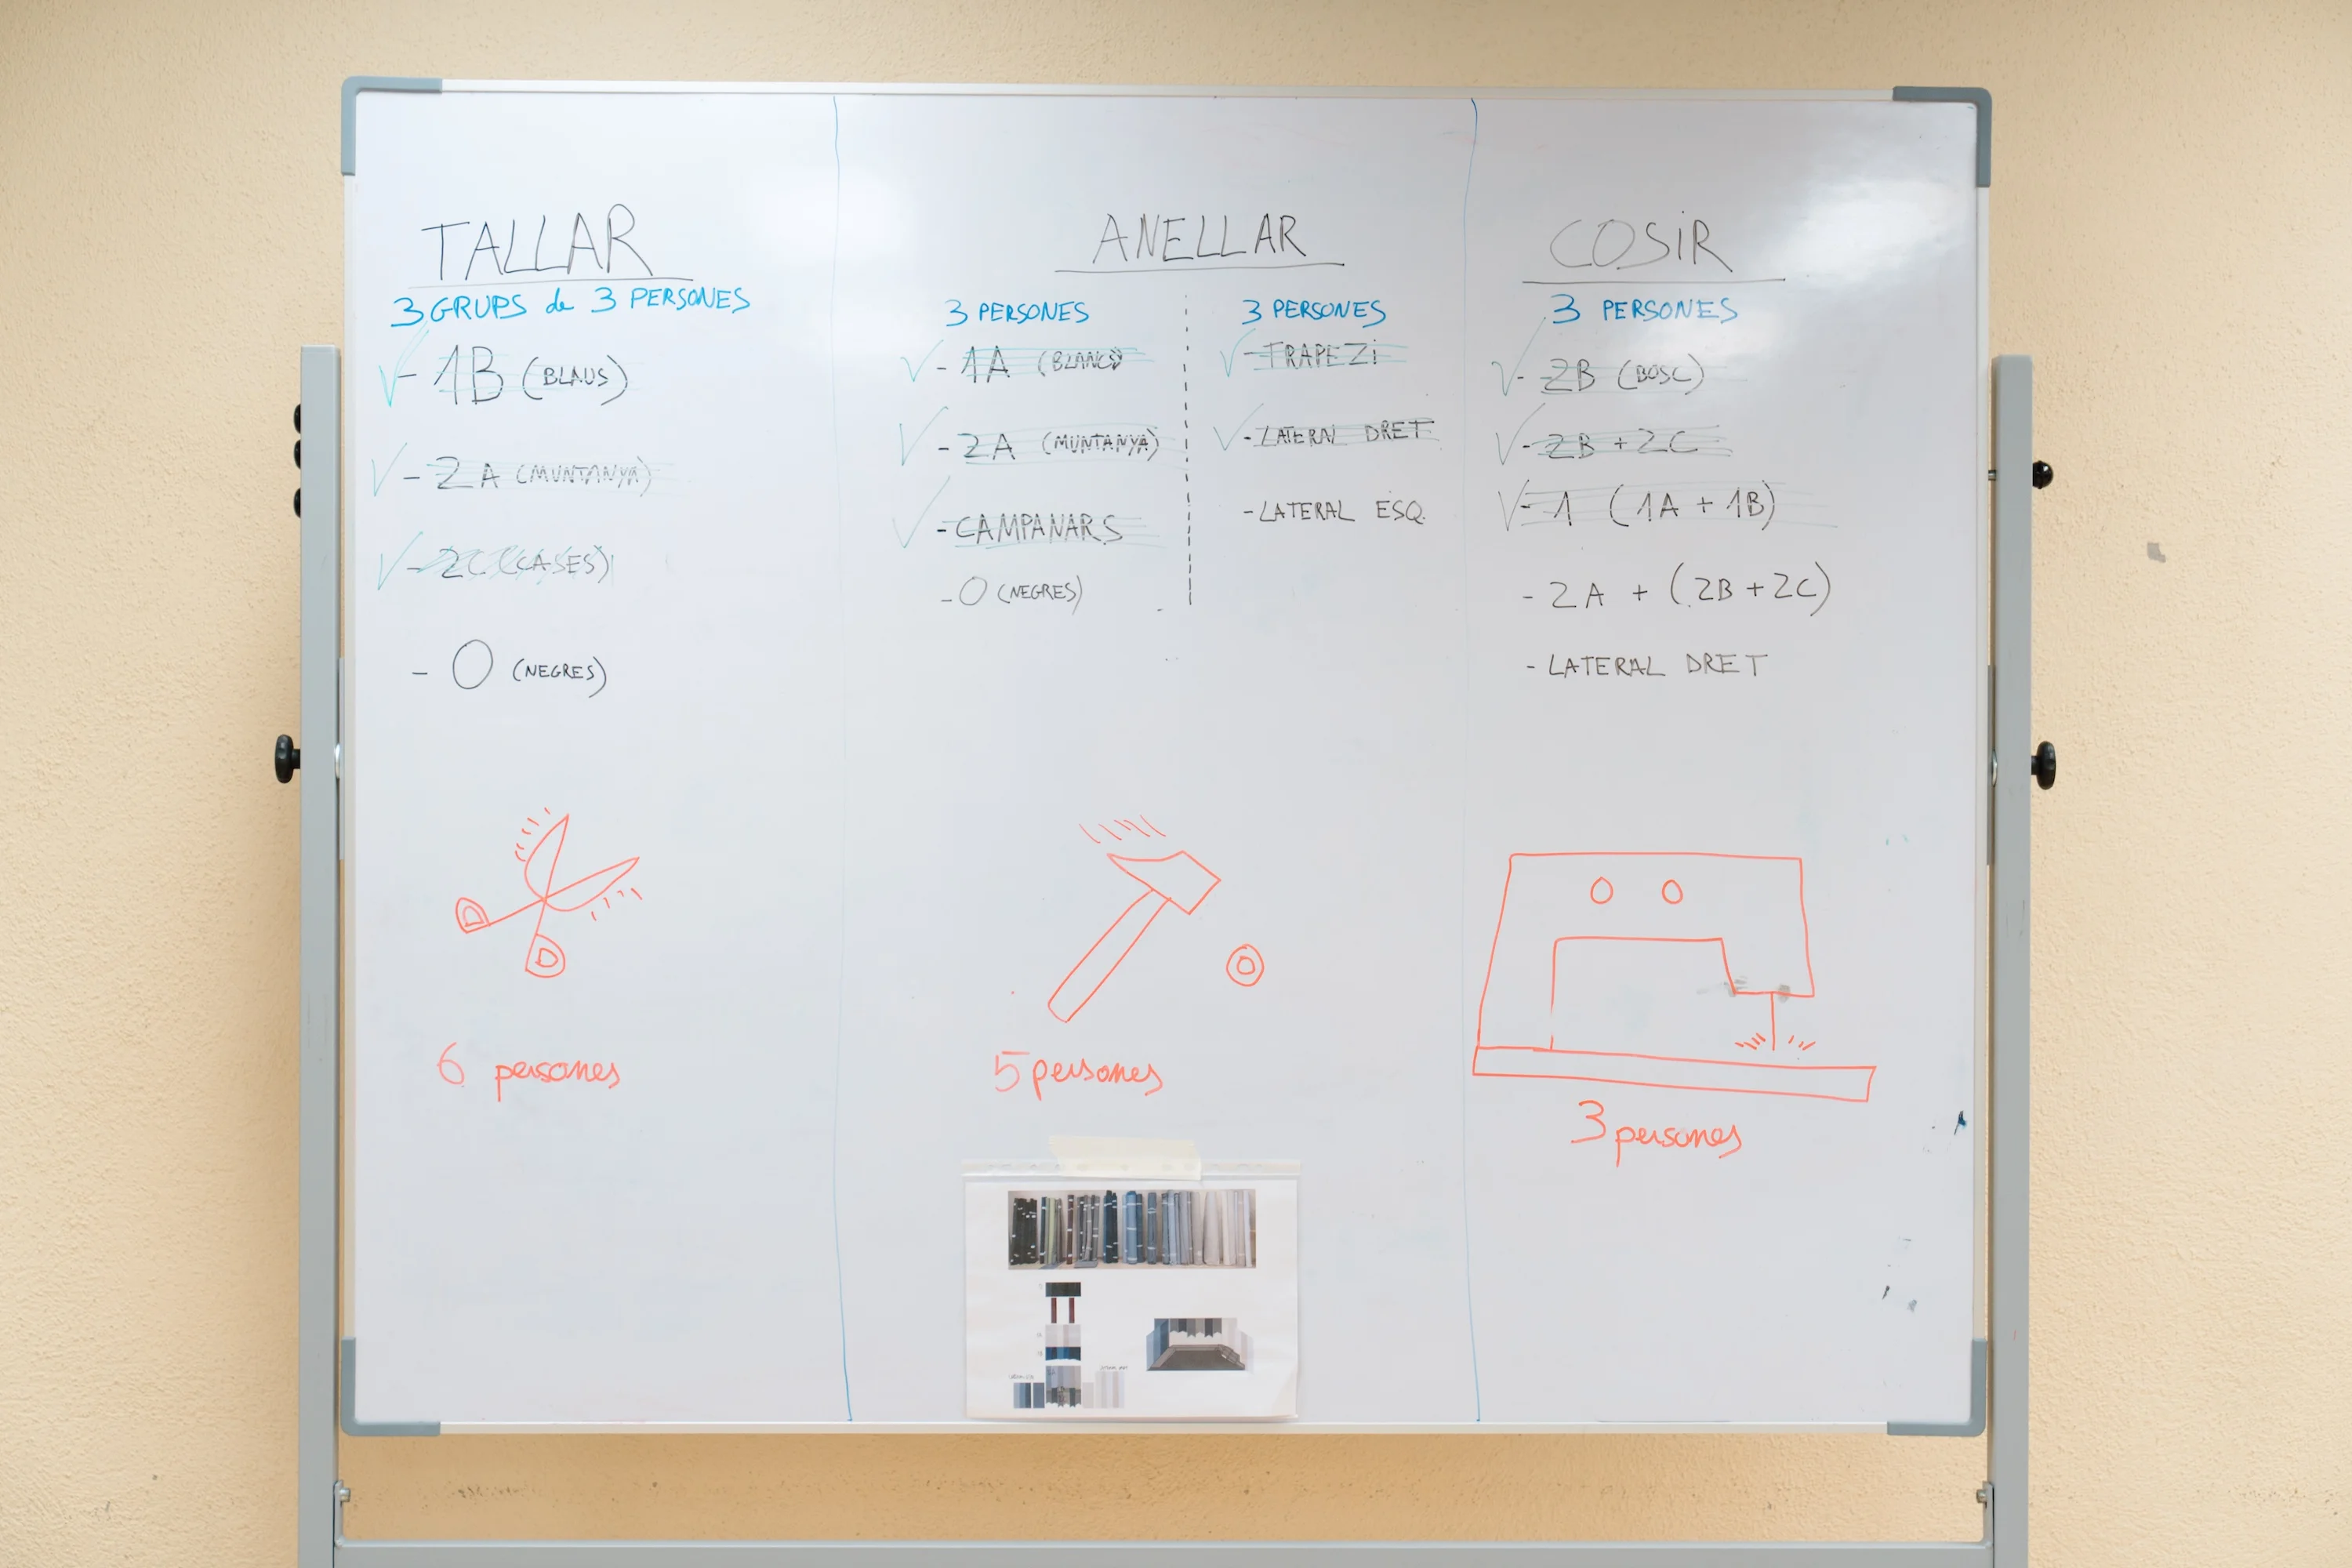 TALLAR
3 GRUPS de 3 PERSONES
- 1B (BLAUS)
- 2A (MUNTANYA)
- 2C (CASES)
- O (NEGRES)
6 persones
ANELLAR
3 PERSONES
- 1A (BLANCS)
- 2A (MUNTANYA)
- CAMPANARS
- O (NEGRES)
3 PERSONES
- TRAPEZI
- LATERAL DRET
- LATERAL ESQ.
5 persones
COSIR
3 PERSONES
- 2B (BOSC)
- 2B + 2C
- 1 (1A + 1B)
- 2A + (2B + 2C)
- LATERAL DRET
3 persones